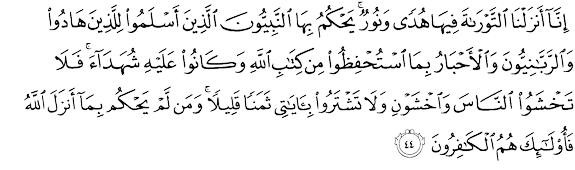 إِنَّآ أَنزَلْنَا ٱلتَّوْرَىٰةَ فِيهَا هُدًى وَنُورٌ ۚ يَحْكُمُ بِهَا ٱلنَّبِيُّونَ ٱلَّذِينَ أَسْلَمُوا۟ لِلَّذِينَ هَادُوا۟
وَٱلرَّبَّـٰنِيُّونَ وَٱلْأَحْبَارُ بِمَا ٱسْتُحْفِظُوا۟ مِن كِتَـٰبِ ٱللَّهِ وَكَانُوا۟ عَلَيْهِ شُهَدَآءَ ۚ فَلَا
تَخْشَوُا۟ ٱلنَّاسَ وَٱخْشَوْنِ وَلَا تَشْتَرُوا۟ بِـَٔايَـٰتِى ثَمَنًا قَلِيلًا ۚ وَمَن لَّمْ يَحْكُم بِمَآ أَنزَلَ ٱللَّهُ
فَأُو۟لَـٰٓئِكَ هُمُ ٱلْكَـٰفِرُونَ ٤٤